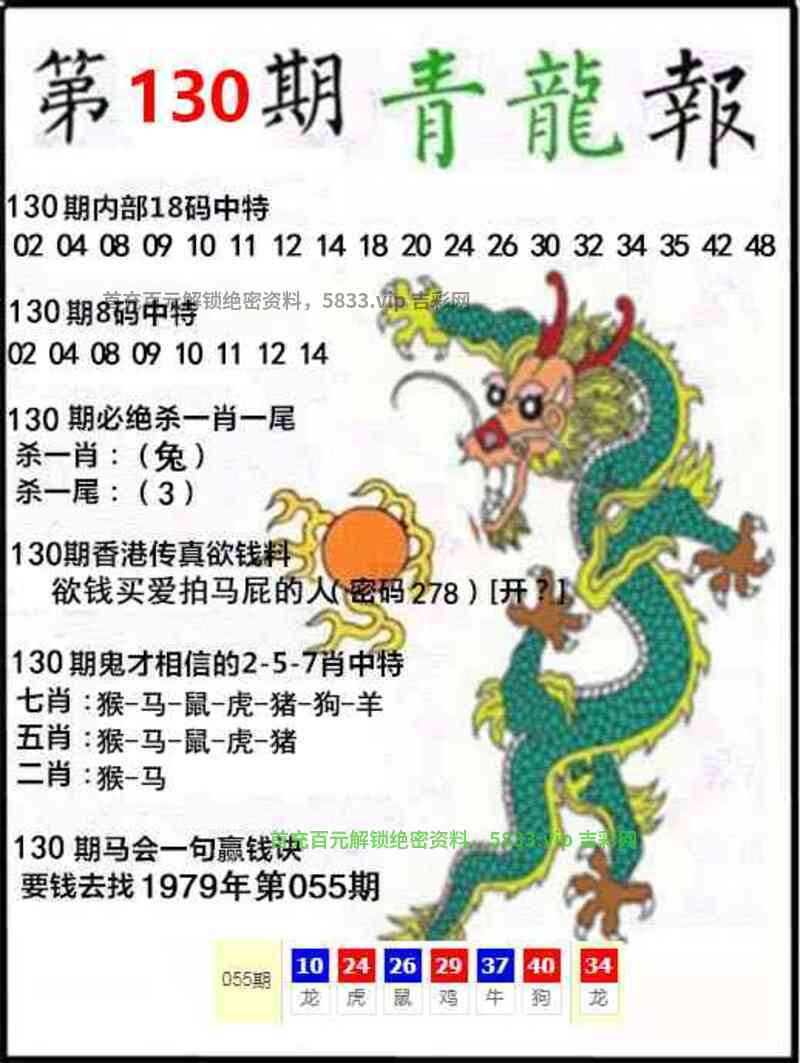 第130期 青龍報
130期内部18码中特
02 04 08 09 10 11 12 14 18 20 24 26 30 32 34 35 42 48
首充百元解锁绝密资料，5833.vip 吉彩网
130期8码中特
02 04 08 09 10 11 12 14
130 期必绝杀一肖一尾
杀一肖：（兔）
杀一尾：（3）
130期香港传真欲钱料
欲钱买爱拍马屁的人（密码278）[开？]
130期鬼才相信的2-5-7肖中特
七肖：猴-马-鼠-虎-猪-狗-羊
五肖：猴-马-鼠-虎-猪
二肖：猴-马
首充百元解锁绝密资料，5833.vip 吉彩网
130 期马会一句赢钱诀
要钱去找1979年第055期
055期 10 24 26 29 37 40 34
龙 虎 鼠 鸡 牛 狗 龙